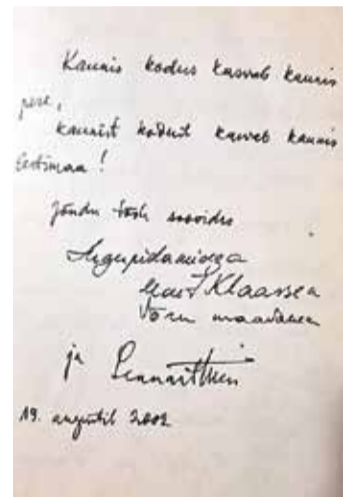 Kaunis kodus kasvab kaunis
pere,
kaunist kodust kasvab kaunis
Eestimaa!
Jõudu tööle soovides
Lugupidamisega
Mait Klaassen
Võru maavanem
ja Lennart Meri
19. augustil 2002